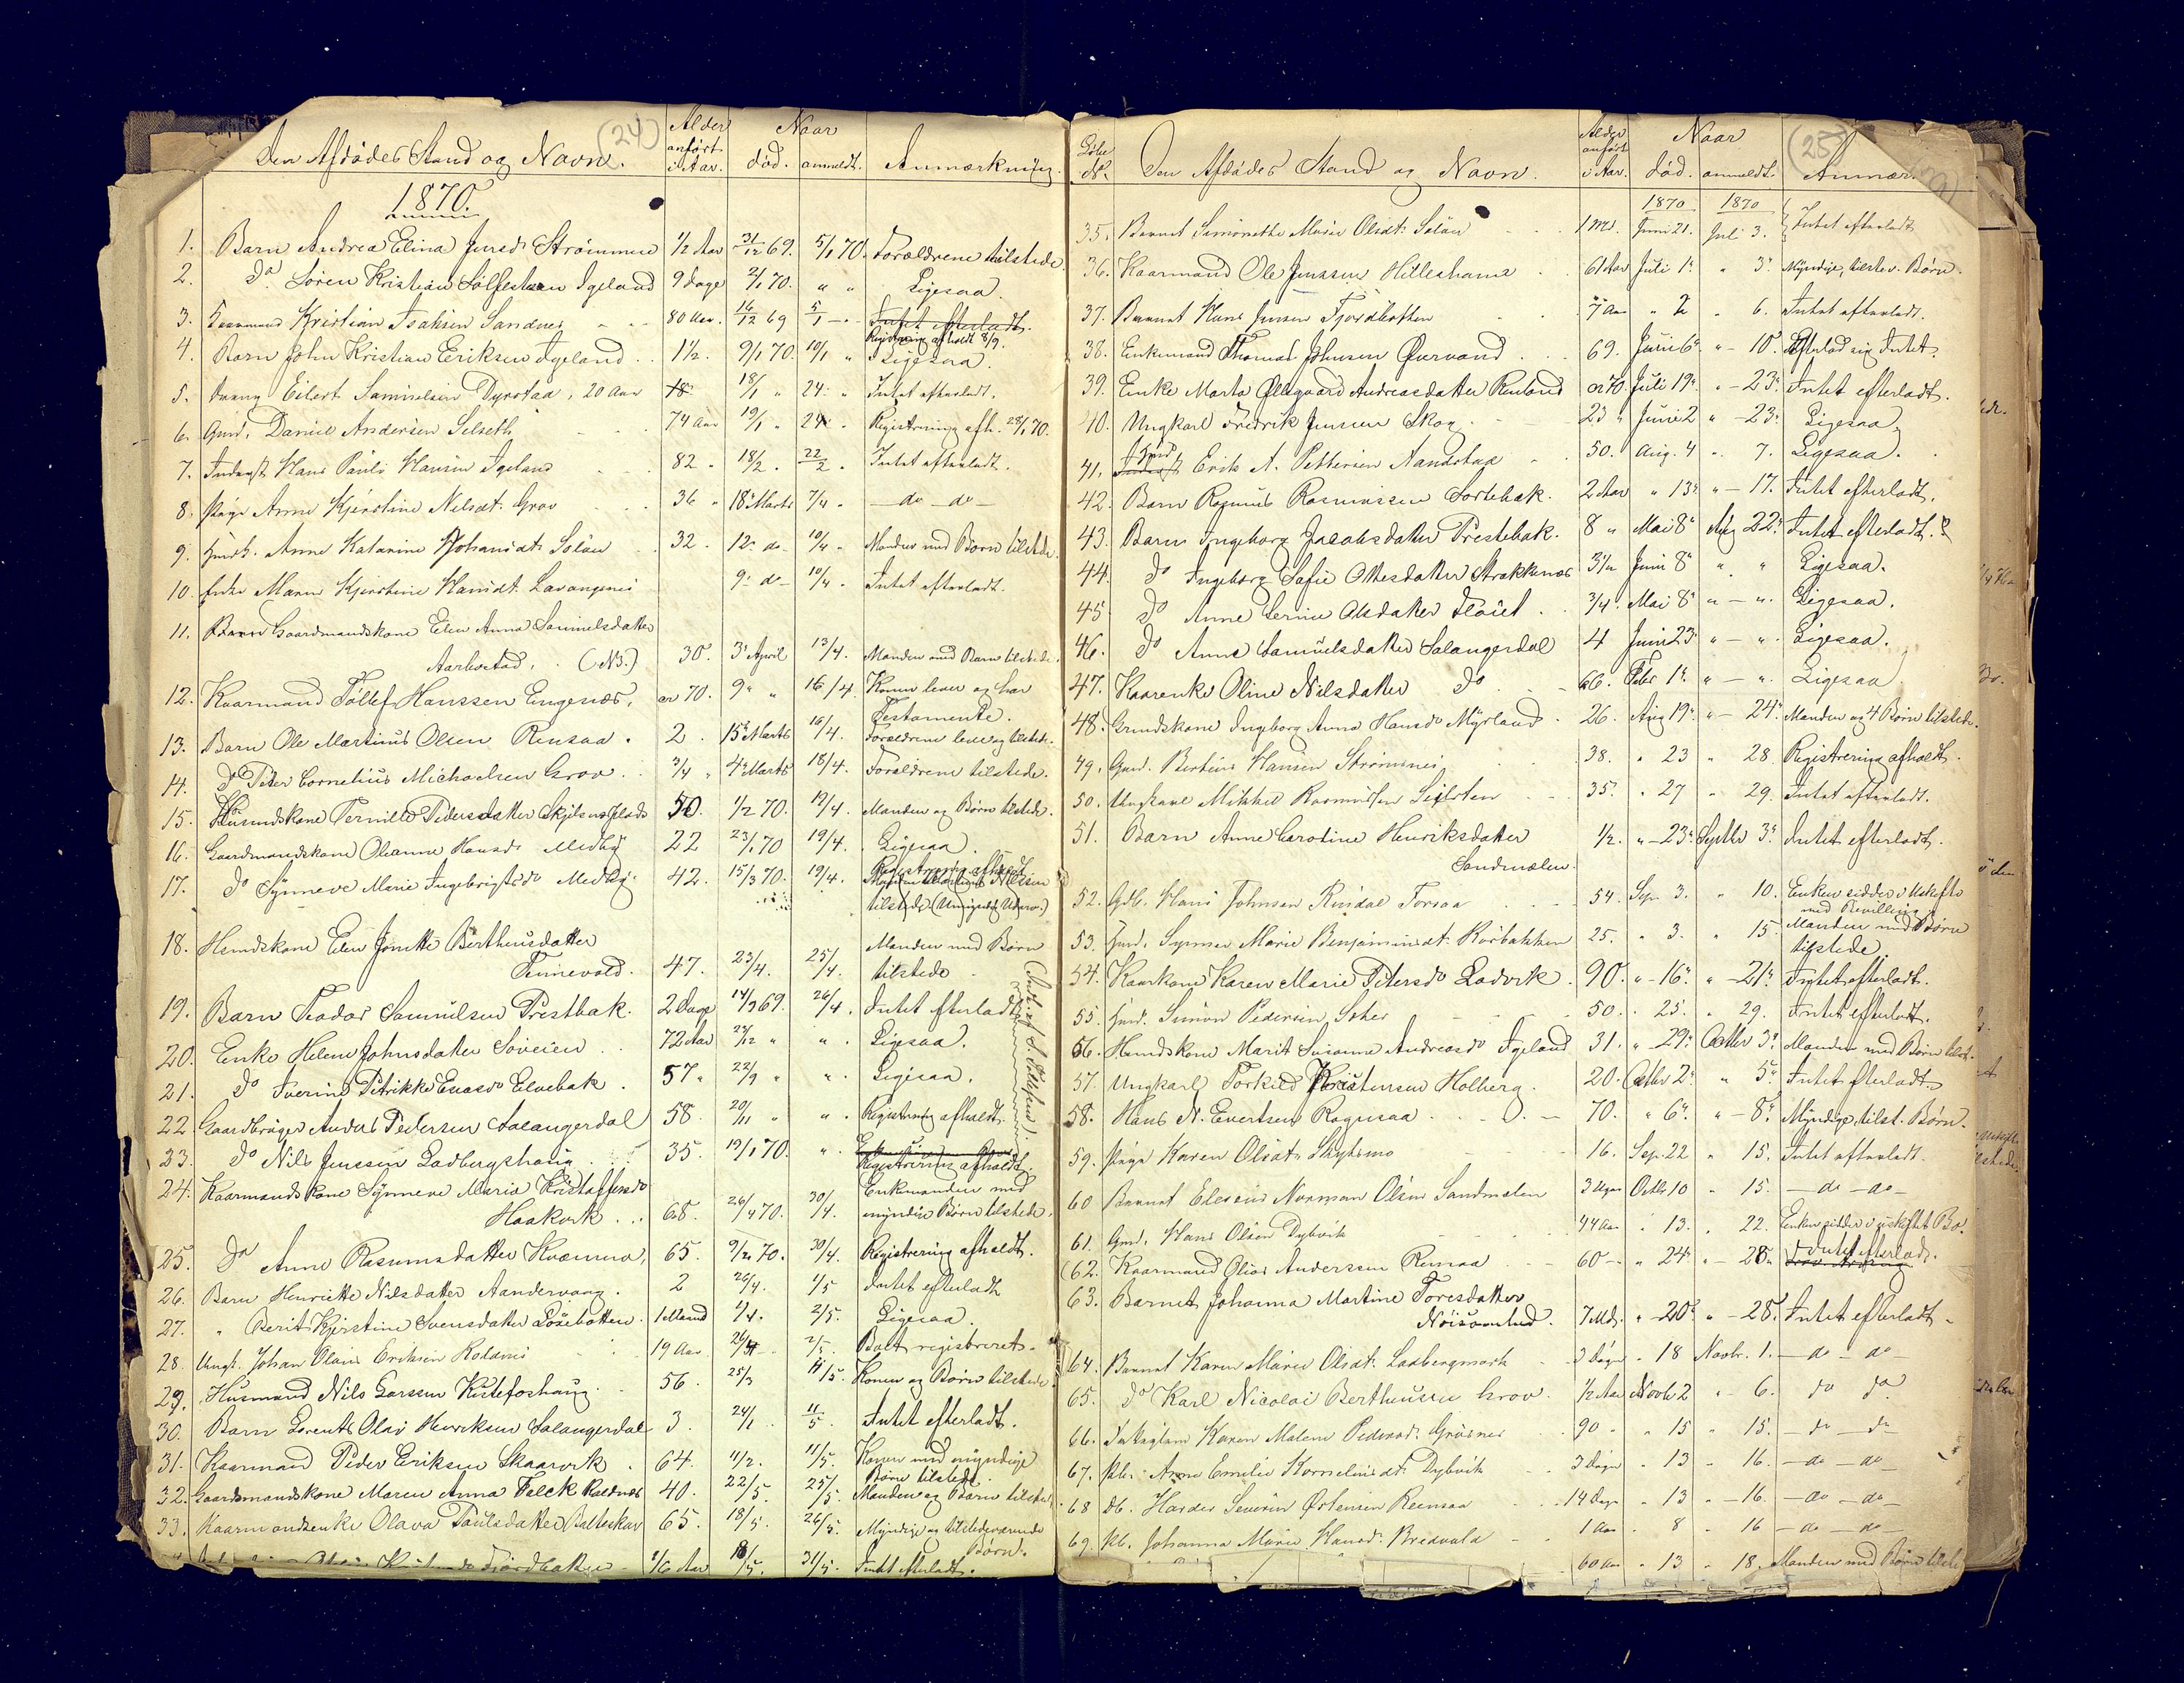 (24)
Den Afdødes Stand og Navn. Alder anført i Aar. Naar død. anmeldt. Anmærkning.
1870.
1. Barn Andrea Elina Jensd: Strömmen 1/2 Aar 31/12 69. 5/1 70. Forældrene tilstede.
2. do Sören Kristian Igeland 9 dage 2/1 70. " " Ligesaa.
3. Kristian Isaksen Sandnes 80 Aar. 16/12 69 5/1 Intet efterladt.
Registrering afholdt 8/9.
4. Barn John Kristian Eriksen Igeland 1 1/2. 9/1 70. 10/1 " Ligesaa.
5. Eilert Samuelsen Dyrstad, 20 Aar 18/1 " 24 " Intet efterladt.
6. Gmd. Daniel Andersen Selseth 74 Aar 19/1 " 24 Registrering afh. 28/1 70.
7. Hans Paulo Hansen Igeland 82 18/2. 22/2. Intet efterladt.
8. Pige Anne Kjerstine Nilsdt: Grov 36 " 18 Marts 7/4 - do - do -
9. Anne Katarine Johansdt: Solöu 32. 12 do 10/4 " Manden med Börn tilstede.
10. Enke Maren Kjerstine Hansdt: Lavangsnes 9 do 10/4 Intet efterladt.
11. Gaardmandskone Elen Anna Samuelsdatter
Aarbostad. (No 3.) 30. 3 April 13/4. Manden med Barn tilstede.
12. Kaarmand Tollef Hanssen Engenæs, 70. 9 " 16/4. Konen lever og har
Testamente.
13. Barn Ole Martinus Olsen Rensaa. 2 15 Marts 16/4. Forældrene lever og tilstede.
14. do Peder Cornelius Michaelsen Grov 3/4 " 4 Marts 18/4. Forældrene tilstede.
15. Husmdskone Pernille Pedersdatter 50. 1/2 70. 19/4. Manden og Börn tilstede.
16. Gaardmandskone Oleanna Hansd: Medby 22 23/1 70 19/4. Ligesaa.
17. do Synneve Marie Ingebrigtsdr Medby 42. 15/3 70. 19/4. Registrering afholdt
tilstede
18. Husmdskone Elen Jonette Bertheusdatter Manden med Börn
Tennevold. 47. 23/4. 25/4. tilstede
19. Barn Teodor Samuelsen Prestbak. 2 Dage 14/9 69. 26/4. Intet efterladt
20. Enke Helene Johnsdatter Soveien 72 Aar 27/12 " " Ligesaa.
21. do Iverine Petrikke Elvebak 57 " 22/9 " " Ligesaa.
22. Gaardbruger Anders Pedersen Salangerdal 58 20/11 " " Registrering afholdt.
23. do Nils Jenssen Ladbergshaug 35. 19/1 70. " Registrering afholdt.
24. Kaarmandskone Synneve Maria Kristoffersdr Enkmanden med
Haakvik 68. 26/4 70. 30/4. myndige Börn tilstede.
25. do Anne Rasmusdatter Kvernmo, 65. 9/2 70. 30/4. Registrering afholdt.
26. Barn Henriette Nilsdatter Aandervaag. 2 26/4. 1/5 Intet efterladt
27. " Berit Kjerstine Svensdatter 1 Maaned 1/4. 2/5. Ligesaa.
28. Ungk. Johan Olaus Eriksen 19 Aar 26/4 2/5. Boet registreret.
29. Husmand Nils Larssen 56. 25/3 11/5. Konen og Börn tilstede.
30. Barn Lorents Olai Henriksen Salangerdal 3 24/1 11/5. Intet efterladt.
31. Kaarmand Peder Eriksen Skaarvik 64. 11/2. 11/5. Konen med myndige
Börn tilstede.
32. Gaardmandskone Maren Anna Falck Kaldnæs 40. 22/5. 25/5. Manden og Barn tilstede
33. Kaarmandsenke Olava Paulsdatter Balteskar 65. 18/5. 26/5. Myndige og tilstedeværende
Börn.
1/6 Aar 18/5. 31/5. Intet efterladt.
(25)
Löbe No Den Afdødes Stand og Navn. Alder anført i Aar. Naar død. anmeldt. Anmær.
1870 1870
35. Barnet Simonethe Marie Olsdt: Solöu 1 Md. Juni 21. Juli 3. Intet efterladt
36. Kaarmand Ole Jenssen Hilleshamn 61 Aar Juli 1 " 3 Myndige, tilstev. Börn.
37. Barnet Hans Jensen Fjordbotten 7 Aar " 2 " 6. Intet efterladt.
38. Enkemand Thomas Johnsen 69. Juni 6 " - 10 Efterlod sig Intet.
39. Enke Marta Ellegaard Andreasdatter 70. Juli 19 " - 23 Intet efterladt.
40. Ungkarl Fredrik Jensen Skog 23 " Juni 2 " - 23 Ligesaa.
41. Erik A. Pettersen Aandstad 50. Aug. 4 " 7. Ligesaa.
42. Barn Rasmus Rasmussen Sortebak. 2 Aar " 13 " - 17. Intet efterladt.
43. Barn Ingeborg Jacobsdatter Prestebak. 8 " Mai 8 Aug 22 Intet efterladt.
44. do Ingeborg Sofie Ottesdatter Strokkenæs Juni 8 " " Ligesaa.
45 do Anne Olsdatter 3/4. Mai 8 " - " Ligesaa.
46. do Anne Samuelsdatter Salangerdal 4 Juni 23 " - " Ligesaa.
47. Kaarenke Oline Nilsdatter do 66. Febr 1 " - " Ligesaa.
48. Grmdskone Ingeborg Anna Hansdr Myrland 26. Aug 19 " - 24 Manden og 4 Börn tilstede.
49. Gmd. Bertius Hansen Strömsnes 38. " 23 " 28. Registrering afholdt.
50. Ungkarl Mikkel Rasmussen 35. " 27 " 29. Intet efterladt.
51. Barn Anne Caroline Henriksdatter 1/2. " - 23 Septbr 3 Intet efterladt.
Sandmælen
52. Gdb. Hans Johnsen Rindal Forsaa 54. Sep. 3. " 10. Enken sidder i Uskifte
med Bevilling
53. Synneve Marie Benjaminsdt: Rörbakken 25. " 3. " 15. Manden med Börn
tilstede
54. Kaarkone Karen Marie Petersdr Ladvik. 90. " - 16 " - 21 Intet efterladt.
55. Simon Pedersen 50. " 25. " 29. Intet efterladt.
56. Husmdskone Marit Susanna Andreasdr Igeland 31. " 29 Octbr 3 Manden med Börn tilst.
57. Ungkarl Torkild Kristensen Holberg. 20. Octbr 2 " 5 Intet efterladt.
58. Hans N. Evertsen 70. " 6 " - 8 Myndige, tilst. Börn.
59. Pige Karen Olsdt: Skytsmo 16. Sep. 22 " 15. Intet efterladt.
60 Barnet Eleseus Norman Olsen Sandmælen 3 Uger Octbr 10 " 15. - do - do -
61. Gmd. Hans Olsen Dybvik 44 Aar " 13. " 22. Enken sidder i uskiftet Bo.
62. Kaarmand Olius Anderssen Rensaa 60 - " 24 " - 28 Intet efterladt.
63. Barnet Johanna Martine Toresdatter
Nöisomhed. 7 Md. " - 20 " - 28 Intet efterladt.
64. Barnet Karen Marie Olsdt: Ladbergmark 3 Dage " 18 Novbr. 1. - do - do -
65. do Karl Nicolai Bertheussen Grov 1/2 Aar Novbr 2 " 6. do do
66. Karen Malene Pedersdt: Grösnes 90 " " 15 " 15. - do - do -
67. Pb. Anne Emilie Kornelius dt: Dybvik 3 Dage " 13 " 16. - do - do -
68 Db. Harder Severin Östensen Rensaa 14 Dage " 13 " - 16. - do - do -
69. Pb. Johanna Marie Hansdt: Bredvala 1 Aar " 8 " 16 - do - do -
60 Aar " 13 " 18. Manden med Börn tilste